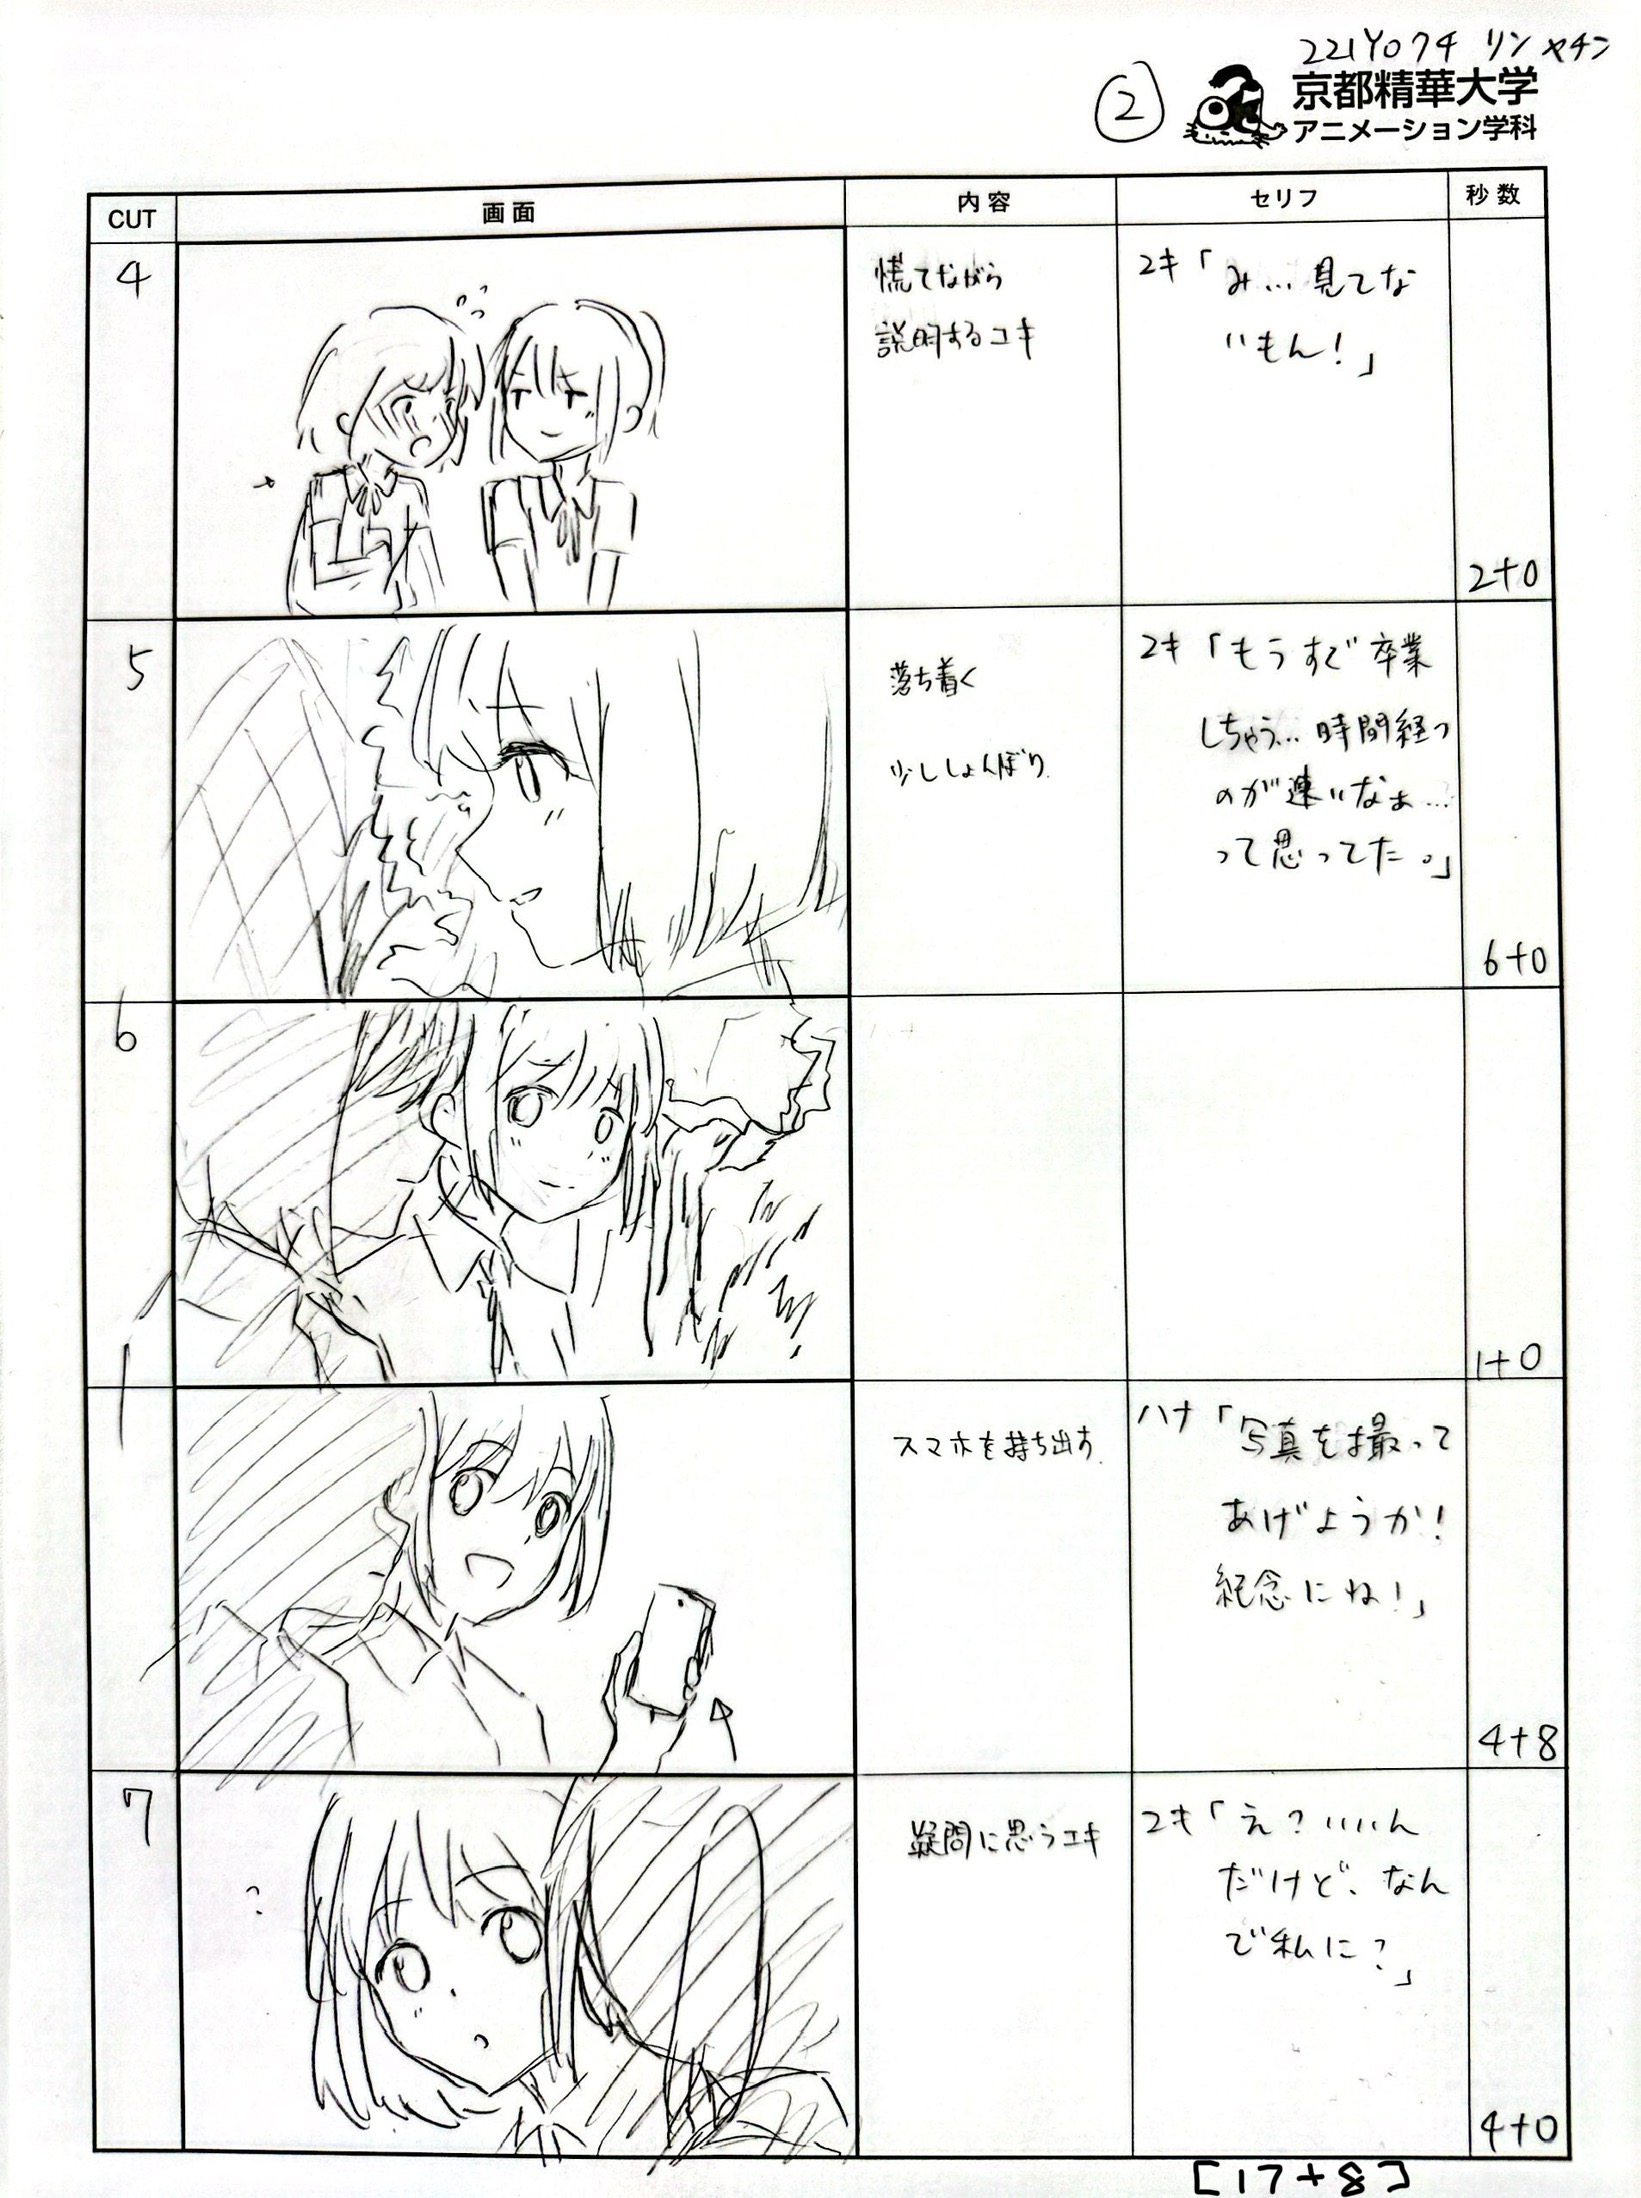 221Y074 リン ヤチン
②
京都精華大学
アニメーション学科
CUT 画面 内容 セリフ 秒数
4
慌てながら
説明するユキ
ユキ「み…見てな
いもん!」
2+0
5
落ち着く
少ししょんぼり
ユキ「もうすぐ卒業
しちゃう…時間経つ
のが速いなぁ…
って思ってた。」
6+0
6
1+0
スマホを持ち出す
ハナ「写真を撮って
あげようか!
紀念にね!」
4+8
7
?
疑問に思うユキ
ユキ「え?いいん
だけど、なん
で私に?」
4+0
[17+8]